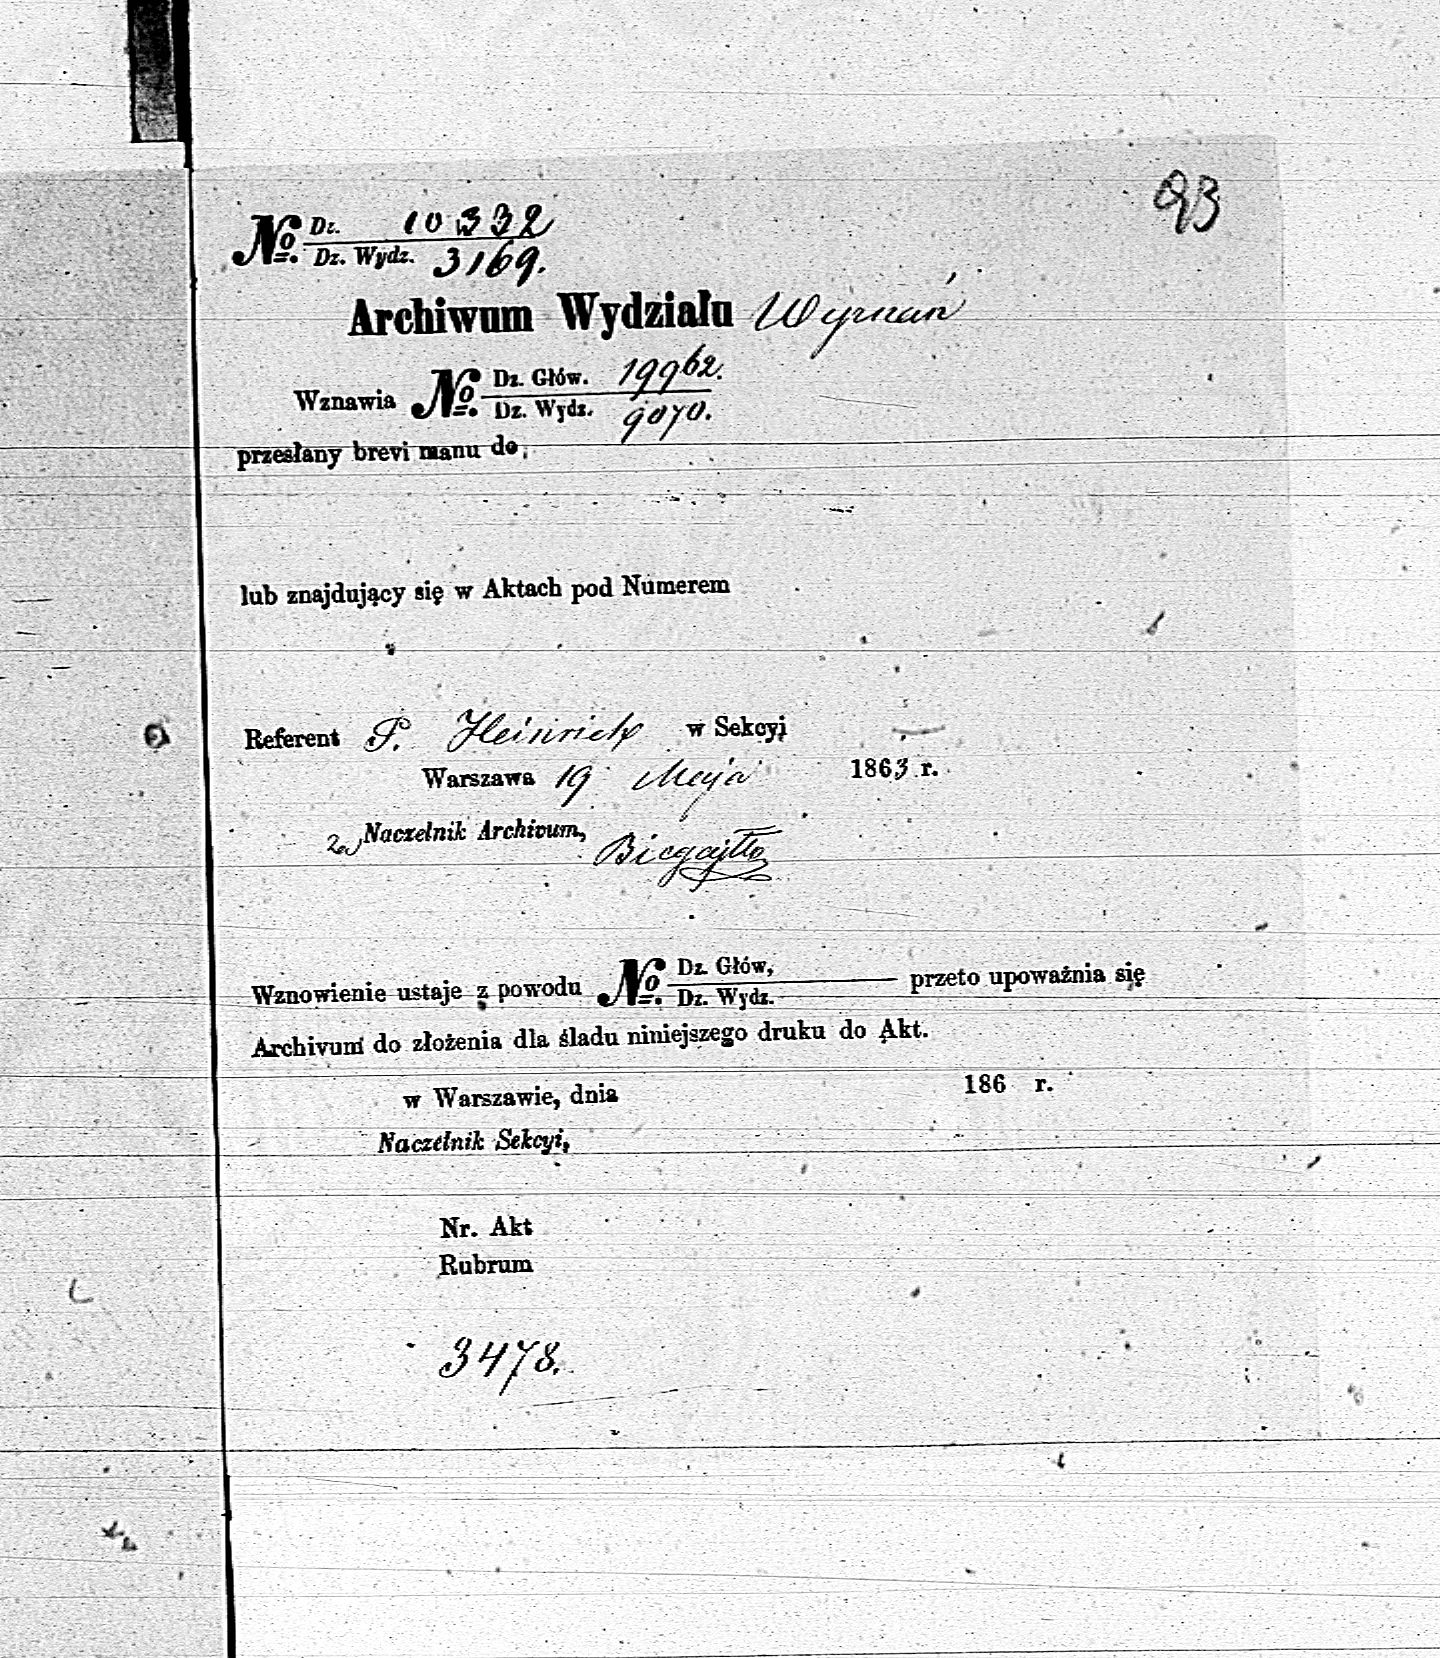 93
№ Dz. 10332
Dz. Wydz. 3169.
Archiwum Wydziału Wyznań
Wznawia № Dz. Głów. 19962.
Dz. Wydz. 9070.
przesłany brevi manu do
lub znajdujący się w Aktach pod Numerem
Referent P. Heinrich w Sekcyi
Warszawa 19 Maja 1863 r.
za Naczelnik Archivum,
Biegajłło
Wznowienie ustaje z powodu № Dz. Głów, przeto upoważnia się
Dz. Wydz.
Archivum do złożenia dla śladu niniejszego druku do Akt.
w Warszawie, dnia 186 r.
Naczelnik Sekcyi,
Nr. Akt
Rubrum
3478.